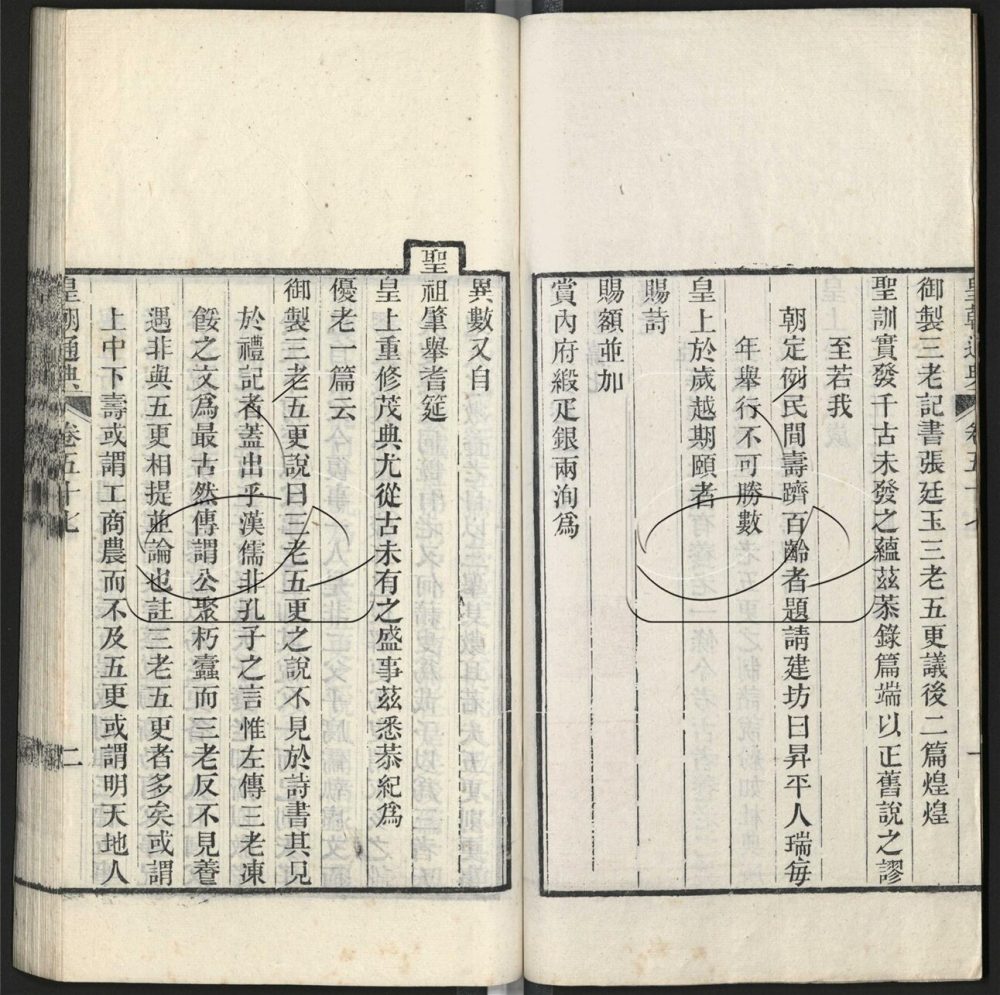 皇朝通典 卷五十七 一
御製三老記書張廷玉三老五更議後二篇煌煌
聖訓實發千古未發之蘊茲恭錄篇端以正舊說之謬
至若我
朝定例民間壽躋百齡者題請建坊曰昇平人瑞每
年舉行不可勝數
皇上於歲越期頤者
賜詩
賜額並加
賞內府緞疋銀兩洵爲
異數又自
聖祖肇舉耆筵
皇上重修茂典尤從古未有之盛事茲悉恭紀爲
優老一篇云
御製三老五更說曰三老五更之說不見於詩書其見
於禮記者蓋出乎漢儒非孔子之言惟左傳三老凍
餒之文爲最古然傳謂公聚朽蠹而三老反不見養
遇非與五更相提並論也註三老五更者多矣或謂
上中下壽或謂工商農而不及五更或謂明天地人
皇朝通典 卷五十七 二